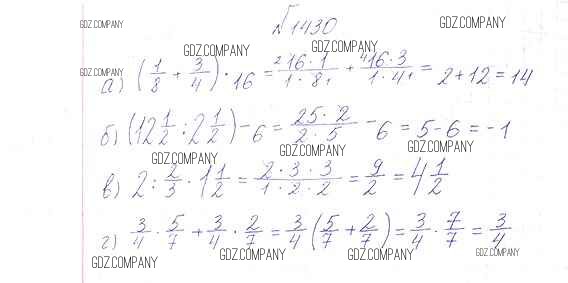 √1430
GDZ.COMPANY GDZ.COMPANY
GDZ.COMPANY GDZ.COMPANY
GDZ.COMPANY
а) (1/8 + 3/4) · 16 = 16 · 1 / 1 · 8 + 16 · 3 / 1 · 4 = 2 + 12 = 14
б) (12 1/2 : 2 1/2) - 6 = 25 · 2 / 2 · 5 - 6 = 5 - 6 = -1
GDZ.COMPANY GDZ.COMPANY GDZ.COMPANY
в) 2 : 2/3 · 1 1/2 = 2 · 3 · 3 / 1 · 2 · 2 = 9/2 = 4 1/2
г) 3/4 · 5/7 + 3/4 · 2/7 = 3/4 (5/7 + 2/7) = 3/4 · 7/7 = 3/4
GDZ.COMPANY GDZ.COMPANY GDZ.COMPANY GDZ.COMPANY